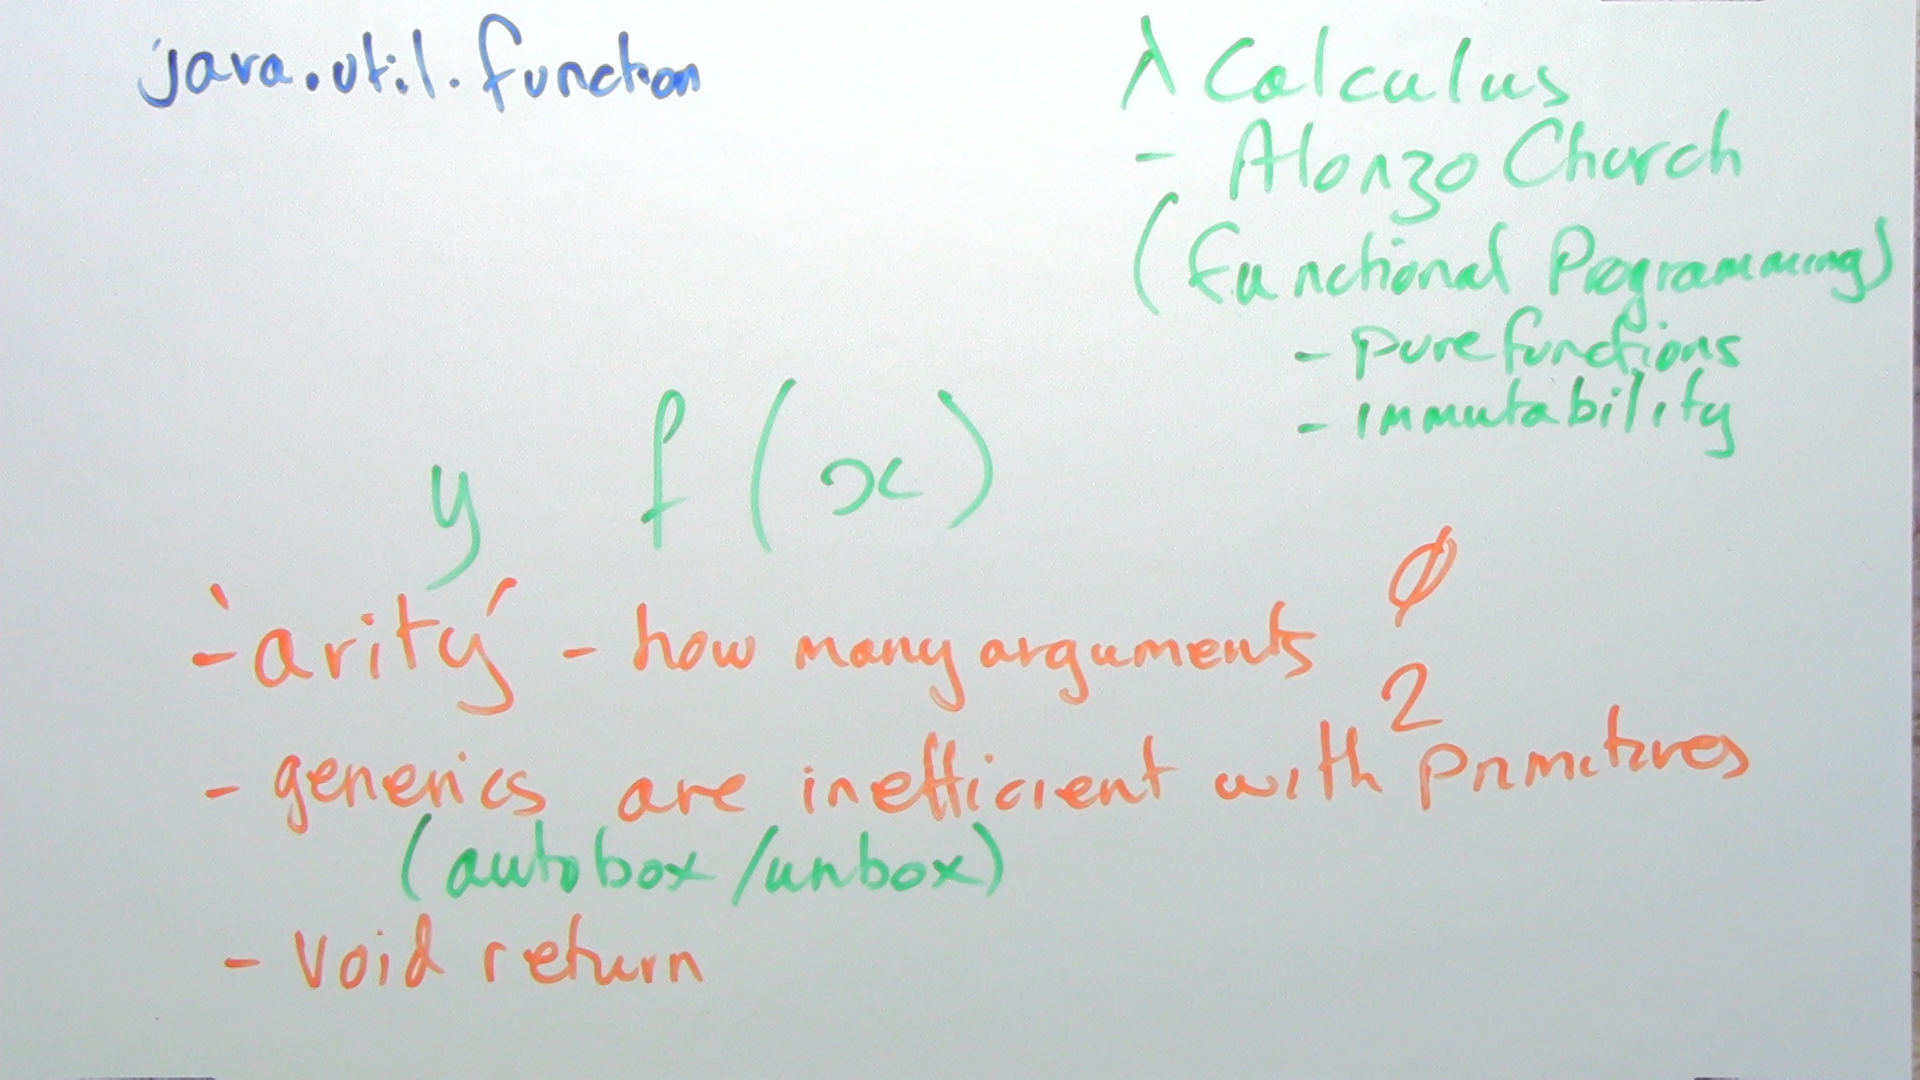 java.util.function
λ Calculus
- Alonzo Church
(Functional Programming)
- pure functions
- immutability
y f(x)
- 'arity' - how many arguments
∅
2
- generics are inefficient with primitives
(autobox/unbox)
- void return